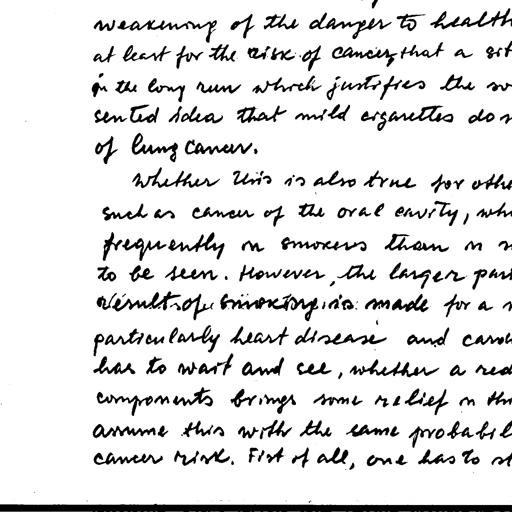 weakening of the danger to health
at least for the risk of cancer, that a sit
in the long run which justifies the so
sented idea that mild cigarettes do
of lung cancer.
Whether this is also true for othe
such as cancer of the oral cavity, whi
frequently in smokers than in
to be seen. However, the larger part
results of smoking is made for a
particularly heart disease and
has to wait and see, whether a red
components brings some relief in thi
assume this with the same probabil
cancer risk. Fist of all, one has to st